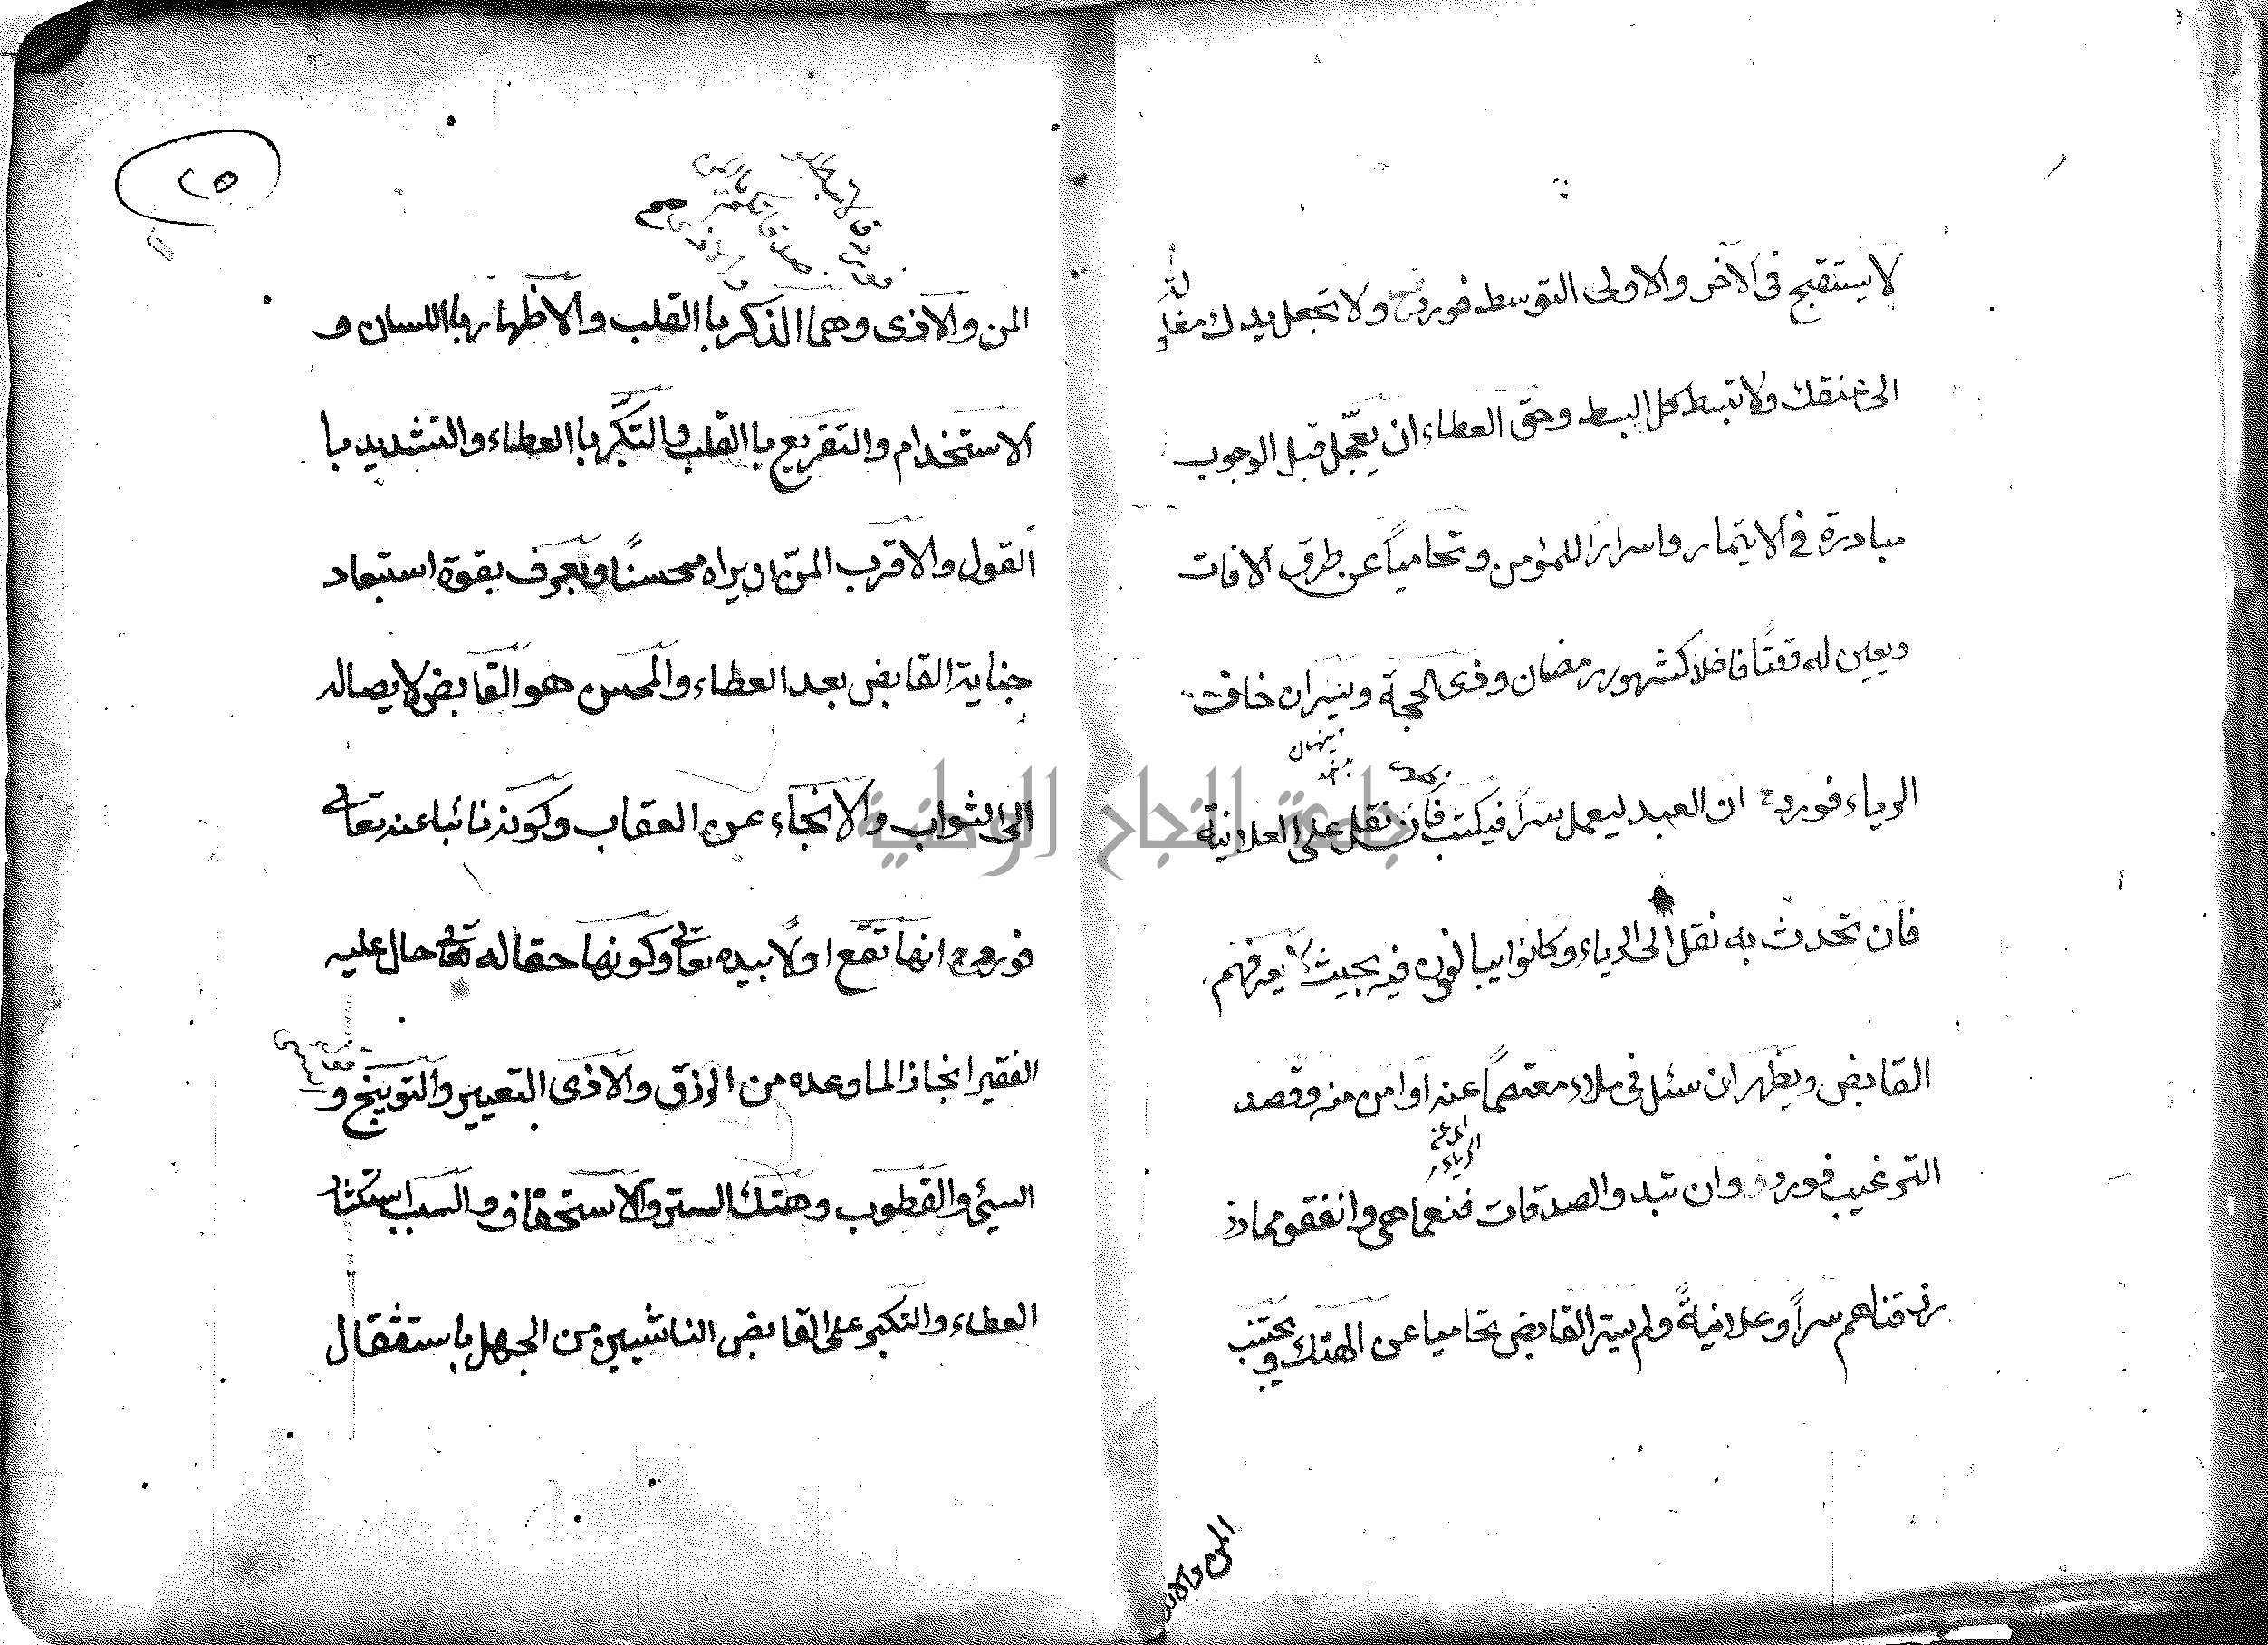 لا يستقبح فى الآخر والاولى التوسط فورد ولا تجعل يدك مغلولة
الى عنقك ولا تبسط كل البسط وحق العطاء ان يعجّل قبل الوجوب
مبادرة فى الايتمار واسرارا للمؤمن وتحامياً عن طرق الافات
ويعين له وقتًا فاضلا كشهور رمضان وذى الحجة ويسر ان خاف
الرياء فورد ان العبد ليعمل سراً فيكتب فان نقل على العلانية
فان تحدث به نقل الى الرياء وكانوا يبالغون فيه بحيث لا يعرفهم
القابض ويظهر ان سئل فى ملاء معتصماً عنه او امن منه وقصد
الترغيب فورد وان تبدو الصدقات فنعما هى وانفقو مما
رزقناهم سراً وعلانيةً ولم يستر القابض تحاميا عن الهتك ويجتنب
المن والاذى
المن والاذى وهما الذكر باالقلب والاظهار باللسان و
الاستخدام والتقريع باالقلب والتكبر باالعطاء والتشديد با
القول والاقرب المن ان يراه محسنًا ويعرف بقوة استبعاد
جناية القابض بعد العطاء والمحسن هو القابض لايصاله
الى الثواب والانجاء عن العقاب وكونه نائبا عنه تعالى
فورد انها تقع اولًا بيده تعالى وكونها حقا له تعالى حال عليه
الفقير انجازا لما وعده من الرزق والاذى التعيير والتوبيخ و
السيئ والقطوب وهتك الستر والاستخفاف والسبب استكثار
العطاء والتكبر على القابض الناشيين من الجهل با ستثقال
٢٥
جامعة النجاح الوطنية